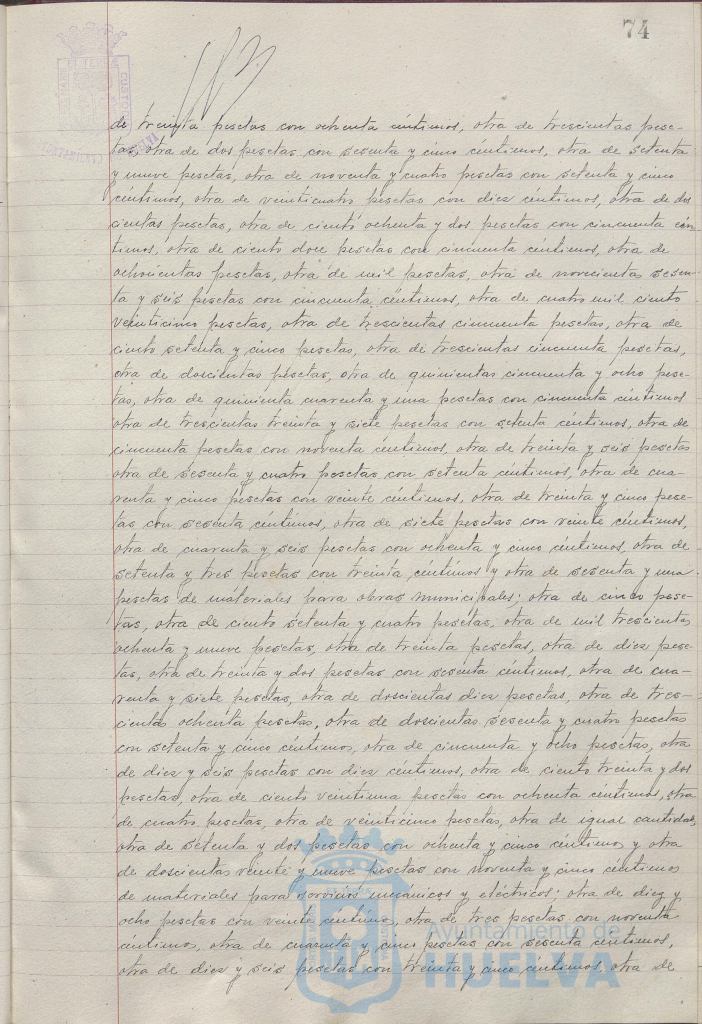 74
de treinta pesetas con ochenta céntimos, otra de trescientas pese-
tas, otra de dos pesetas con sesenta y cinco céntimos, otra de setenta
y nueve pesetas, otra de noventa y cuatro pesetas con setenta y cinco
céntimos, otra de veinticuatro pesetas con diez céntimos, otra de dos
cientas pesetas, otra de ciento ochenta y dos pesetas con cincuenta cén-
timos, otra de ciento doce pesetas con cincuenta céntimos, otra de
ochocientas pesetas, otra de mil pesetas, otra de novecientas sesen-
ta y seis pesetas con cincuenta céntimos, otra de cuatro mil ciento
veinticinco pesetas, otra de trescientas cincuenta pesetas, otra de
ciento setenta y cinco pesetas, otra de trescientas cincuenta pesetas,
otra de doscientas pesetas, otra de quinientas cincuenta y ocho pese-
tas, otra de quinienta cuarenta y una pesetas con cincuenta céntimos
otra de trescientas treinta y siete pesetas con setenta céntimos, otra de
cincuenta pesetas con noventa céntimos, otra de treinta y seis pesetas
otra de sesenta y cuatro pesetas con setenta céntimos, otra de cua-
renta y cinco pesetas con veinte céntimos, otra de treinta y cinco pese-
tas con sesenta céntimos, otra de siete pesetas con veinte céntimos,
otra de cuarenta y seis pesetas con ochenta y cinco céntimos, otra de
setenta y tres pesetas con treinta céntimos y otra de sesenta y una
pesetas de materiales para obras municipales; otra de cinco pese-
tas, otra de ciento setenta y cuatro pesetas, otra de mil trescientas
ochenta y nueve pesetas, otra de treinta pesetas, otra de diez pese-
tas, otra de treinta y dos pesetas con sesenta céntimos, otra de cua-
renta y siete pesetas, otra de doscientas diez pesetas, otra de tres-
cientas ochenta pesetas, otra de doscientas sesenta y cuatro pesetas
con setenta y cinco céntimos, otra de cincuenta y ocho pesetas, otra
de diez y seis pesetas con diez céntimos, otra de ciento treinta y dos
pesetas, otra de ciento veintiuna pesetas con ochenta céntimos, otra
de cuatro pesetas, otra de veinticinco pesetas, otra de igual cantidad,
otra de setenta y dos pesetas con ochenta y cinco céntimos y otra
de doscientas veinte y nueve pesetas con noventa y cinco céntimos
de materiales para servicios mecánicos y eléctricos; otra de diez y
ocho pesetas con veinte céntimos, otra de tres pesetas con noventa
céntimos, otra de cuarenta y cinco pesetas con sesenta céntimos,
otra de diez y seis pesetas con treinta y cinco céntimos, otra de
Ayuntamiento de
HUELVA